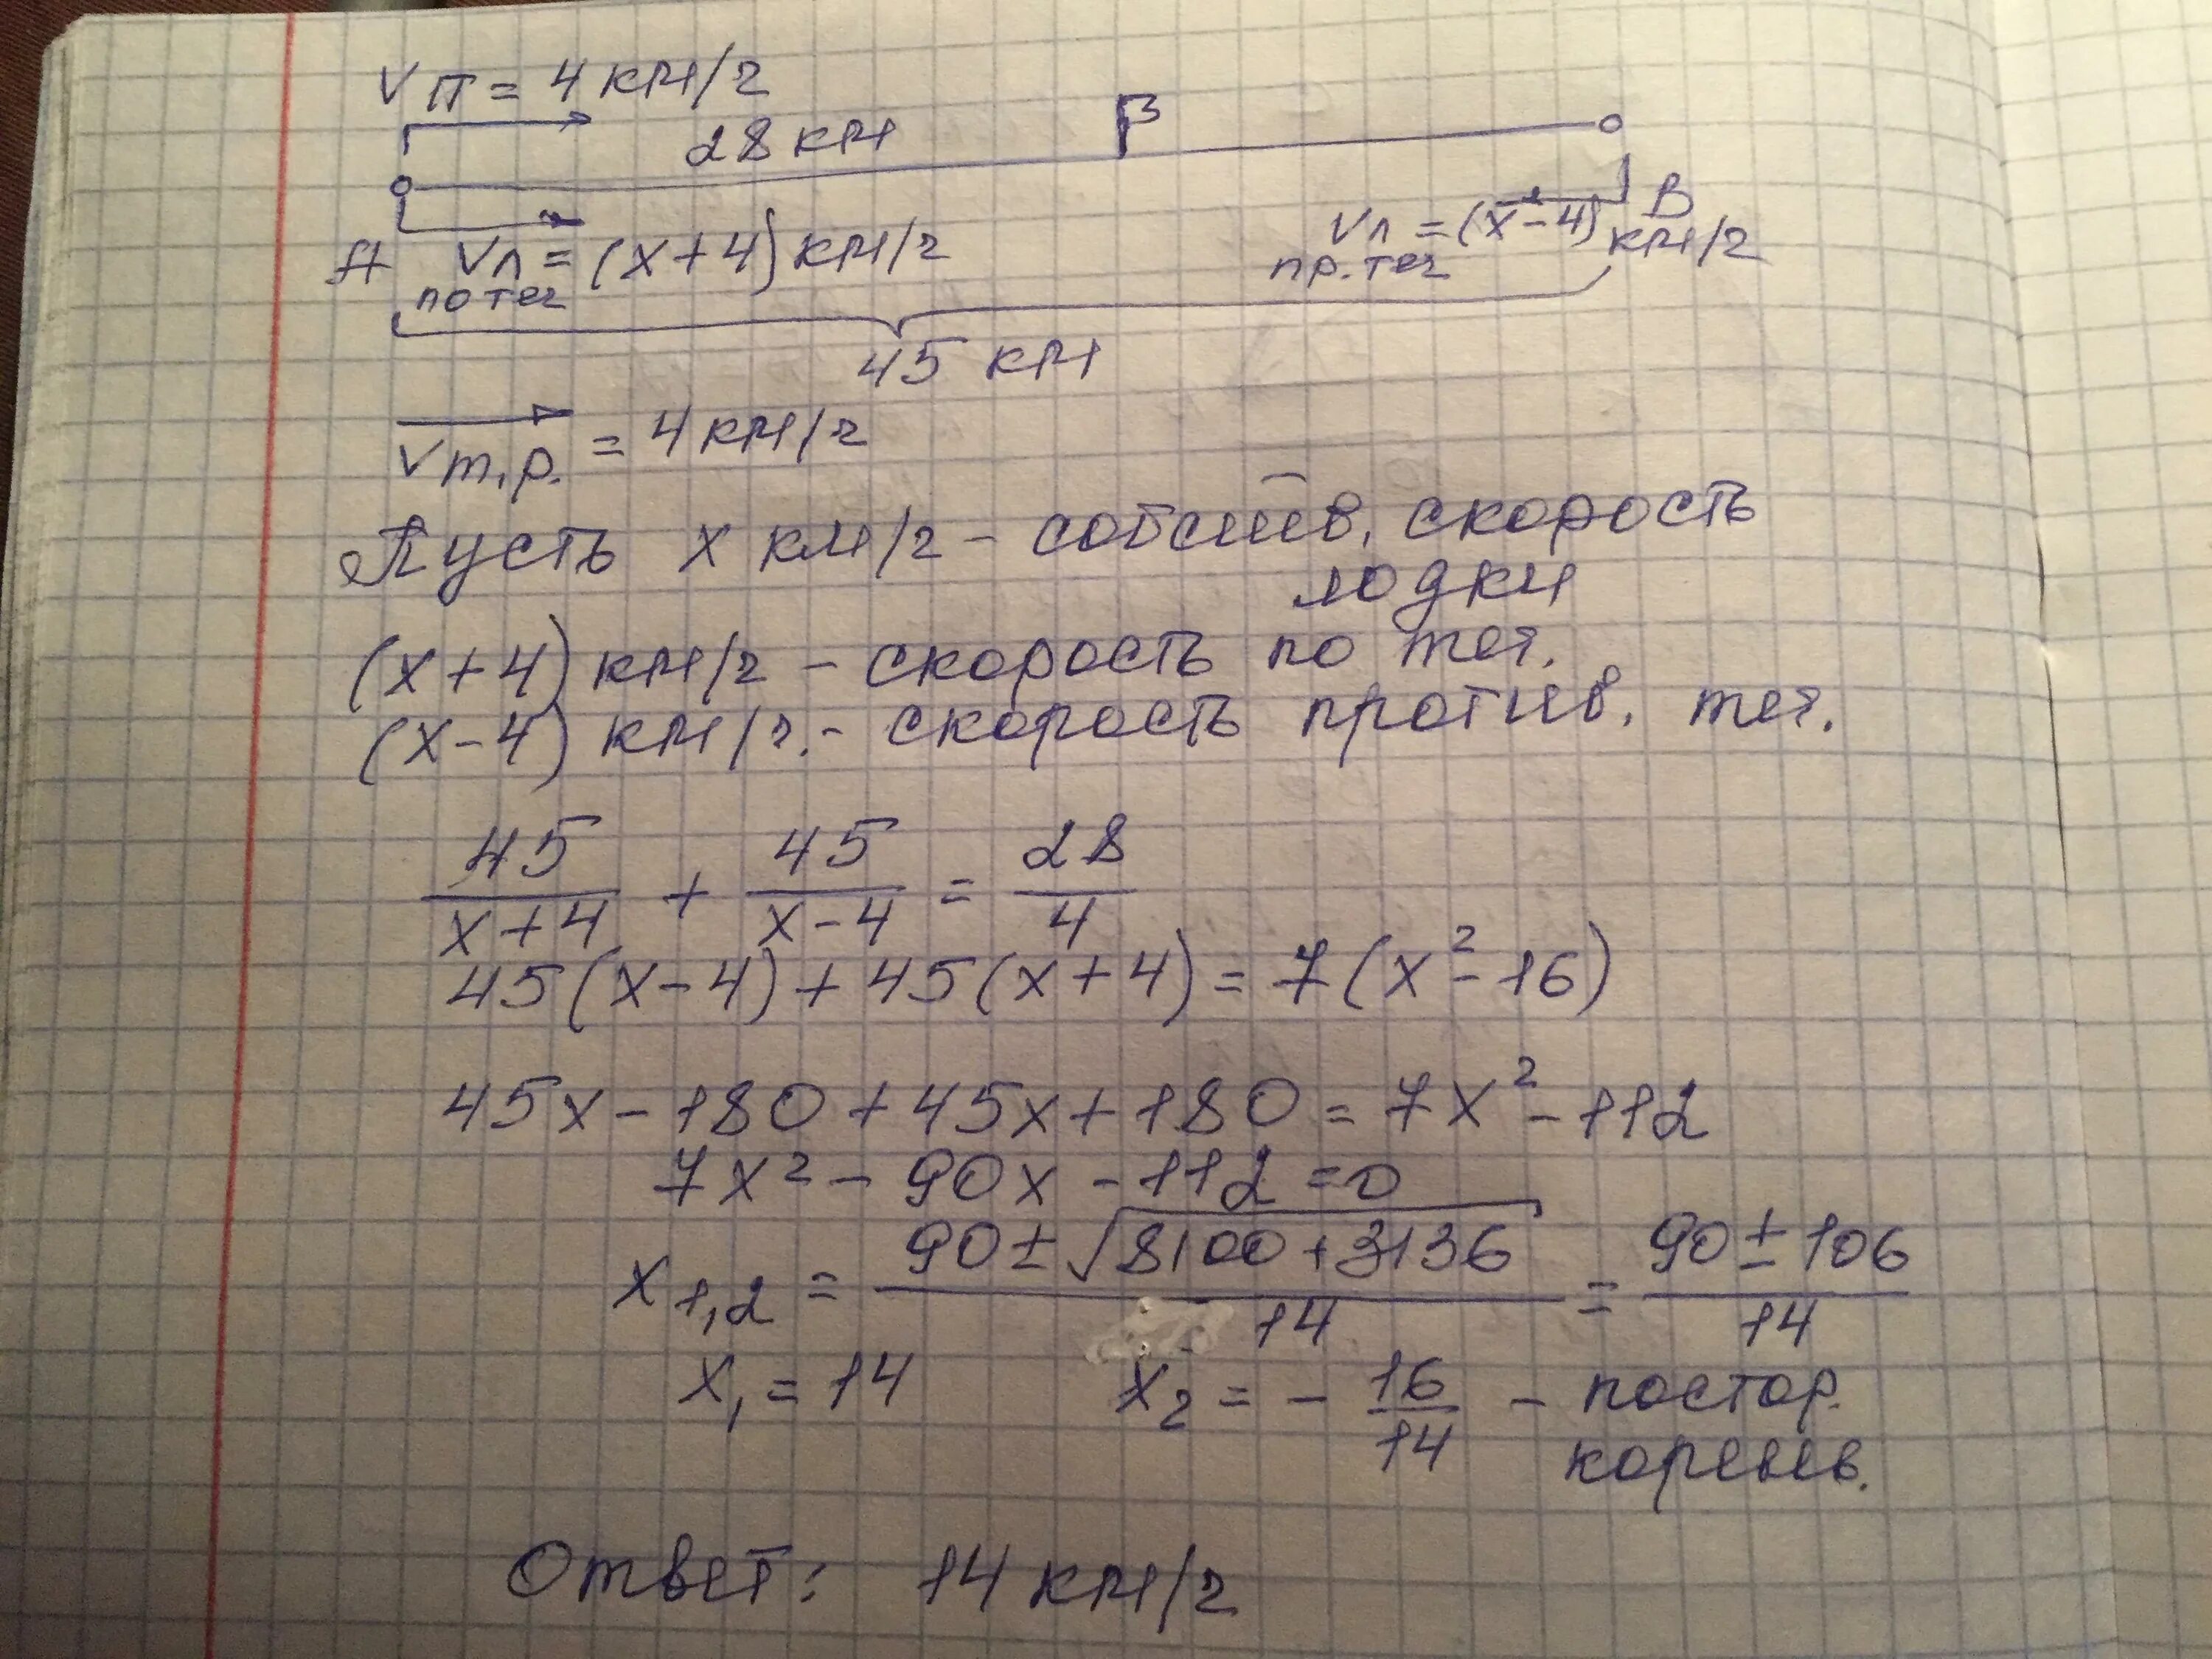 Vп = 4 км/ч
28 км
В
А
Vл = (x+4) км/ч
по теч
Vл = (x-4) км/ч
пр. теч
45 км
Vт.р. = 4 км/ч
Пусть x км/ч - собств. скорость
лодки
(x+4) км/ч - скорость по теч.
(x-4) км/ч. - скорость против. теч.
45/(x+4) + 45/(x-4) = 28/4
45(x-4)+45(x+4) = 7(x²-16)
45x-180+45x+180 = 7x²-112
7x²-90x-112=0
x1,2 = (90±√(8100+3136))/14 = (90±106)/14
x1 = 14 x2 = -16/14 - постор.
корень.
Ответ: 14 км/ч